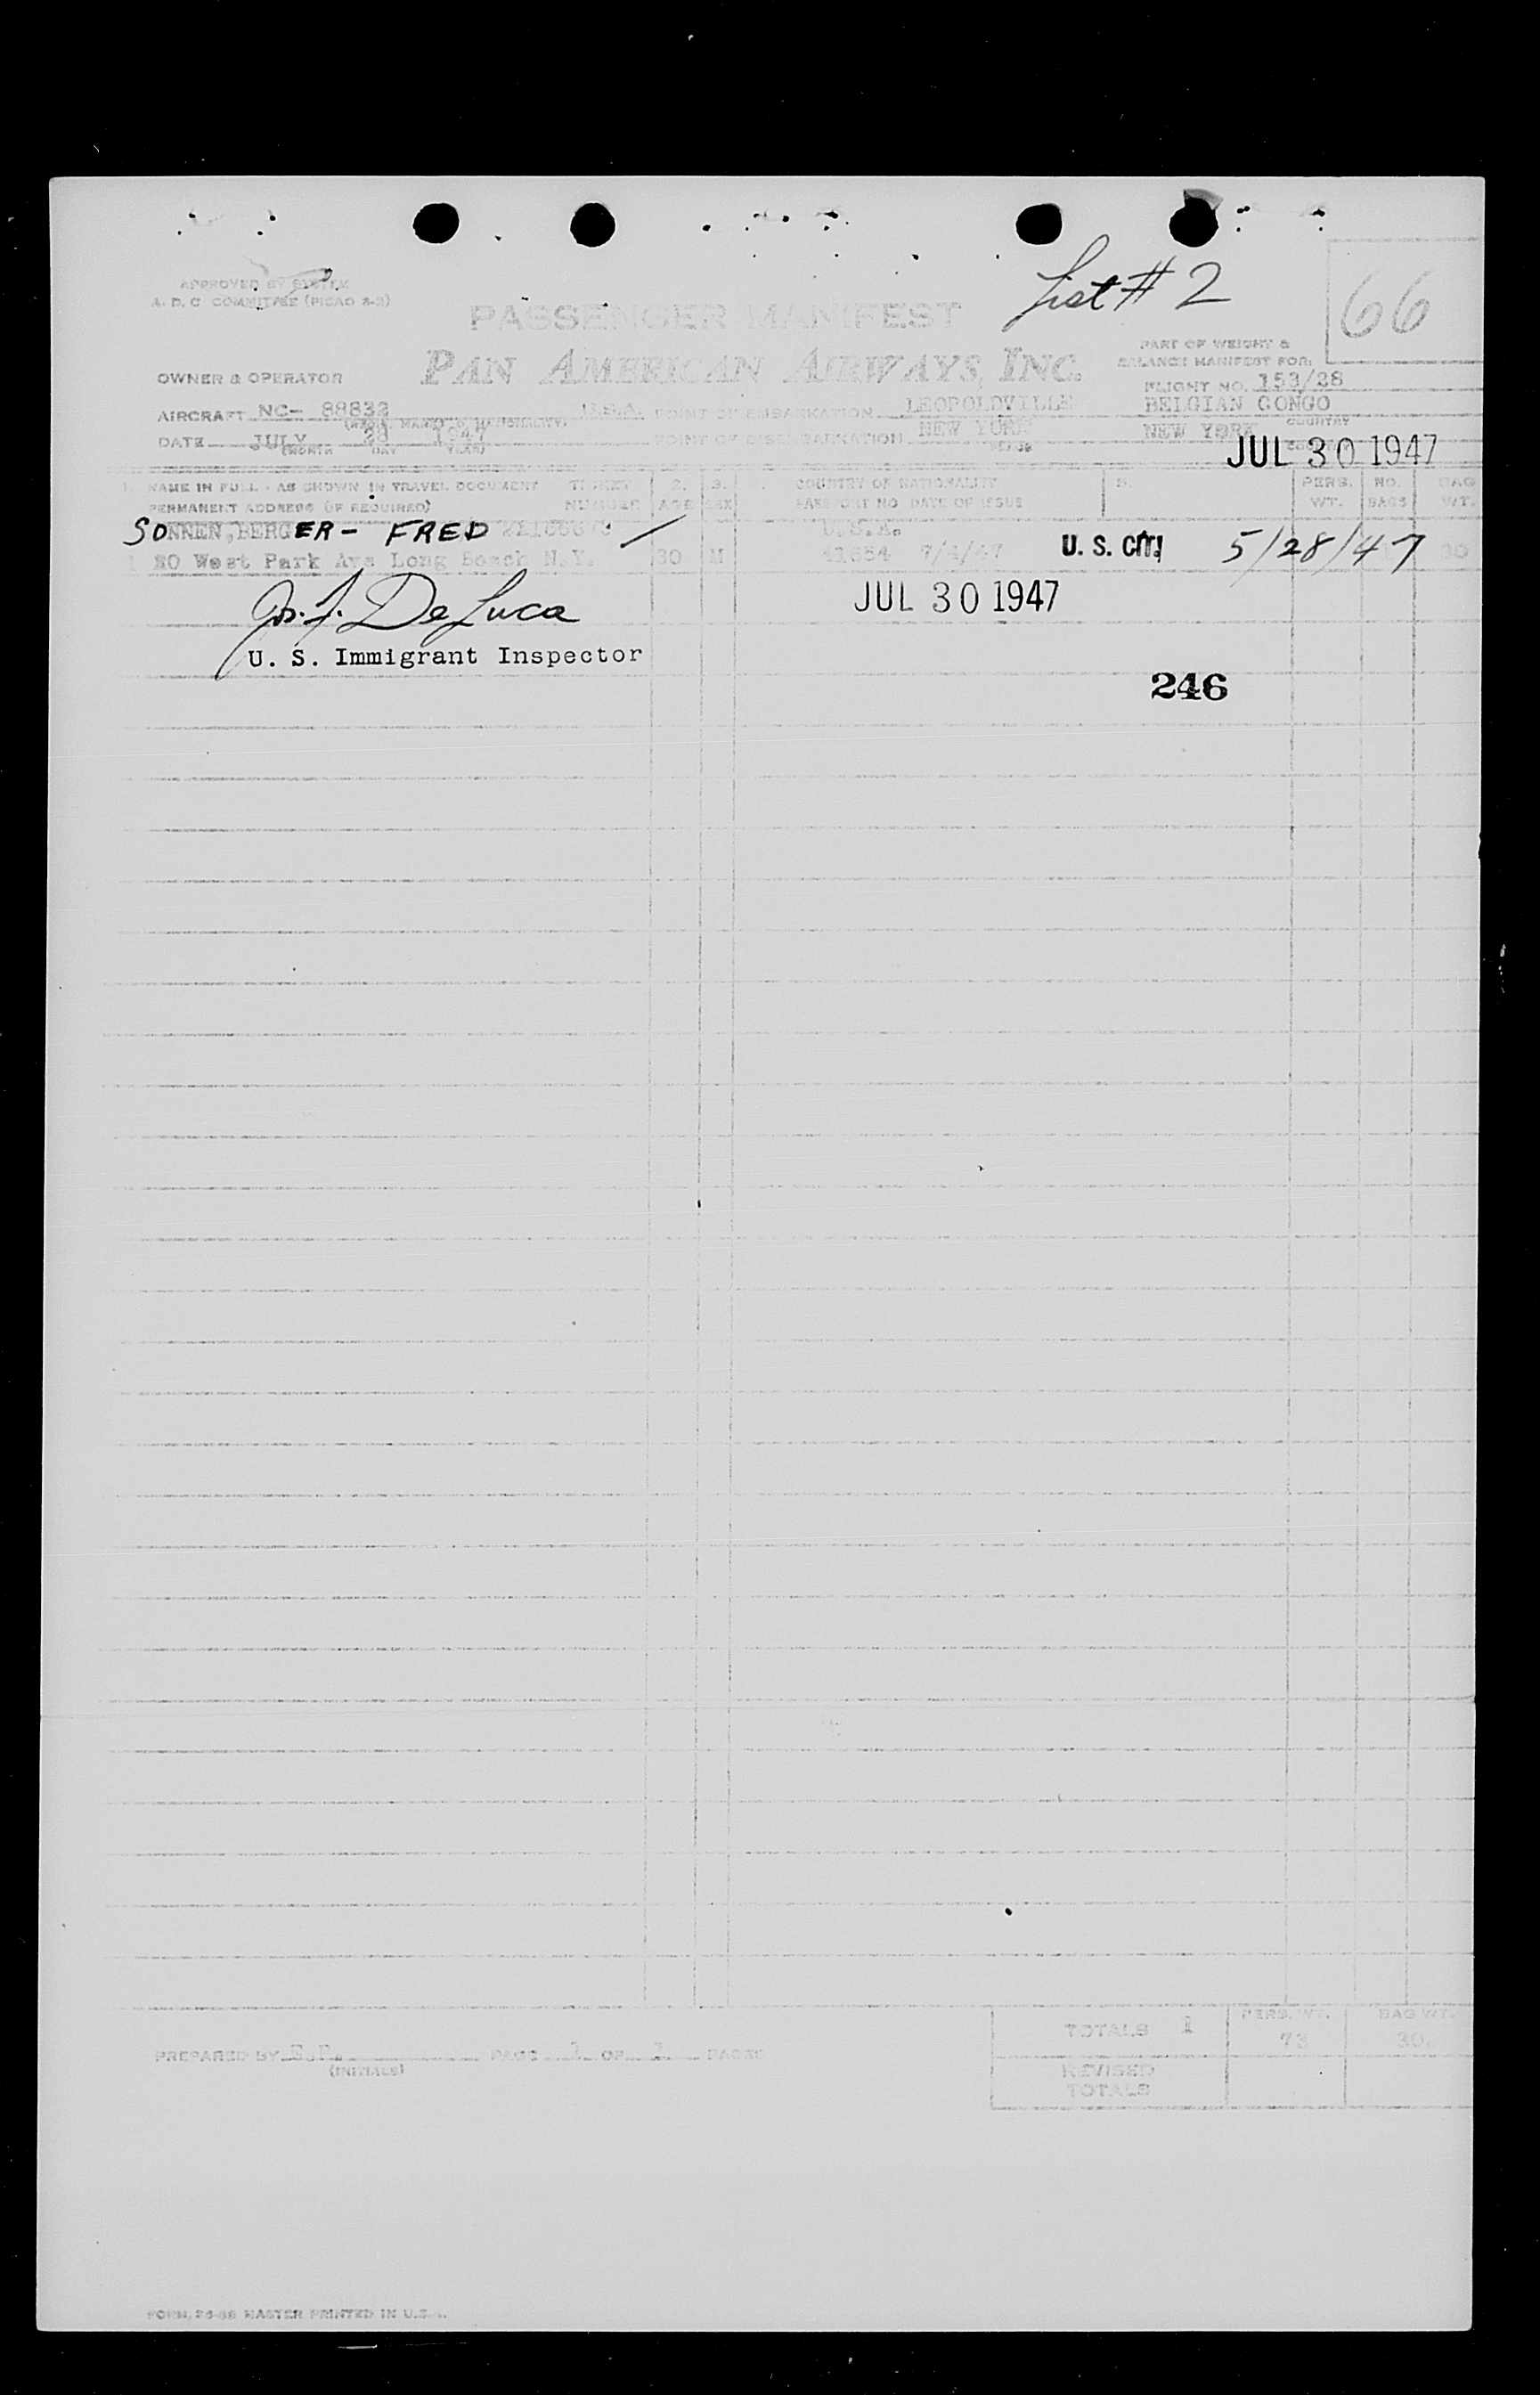 APPROVED BY SYSTEM
A. D. C. COMMITTEE (PICAO 2-3)
List # 2
66
PASSENGER MANIFEST
PAN AMERICAN AIRWAYS, INC.
PART OF WEIGHT &
BALANCE MANIFEST FOR:
OWNER & OPERATOR
FLIGHT NO. 153/28
AIRCRAFT NC- 88832 U.S.A. POINT OF EMBARKATION LEOPOLDVILLE BELGIAN CONGO
COUNTRY
DATE JULY 28 1947 POINT OF DISEMBARKATION NEW YORK NEW YORK
(MONTH DAY YEAR)
JUL 30 1947
1. NAME IN FULL - AS SHOWN IN TRAVEL DOCUMENT TICKET 2. 3. COUNTRY OF NATIONALITY 5. PERS. NO. BAG
PERMANENT ADDRESS (IF REQUIRED) NUMBER AGE SEX PASSPORT NO DATE OF ISSUE WT. BAGS WT.
SONNEN,BERGER - FRED U.S.A.
1 80 West Park Ave Long Beach N.Y. 30 M 41654 U. S. CIT. 5/28/47 30
Jos. F. DeLuca
JUL 30 1947
U. S. Immigrant Inspector
246
TOTALS 1 PERS. WT. 73 BAG WT. 30
PREPARED BY PAGE 1 OF PAGES
(INITIALS)
REVISED
TOTALS
MASTER PRINTED IN U.S.A.